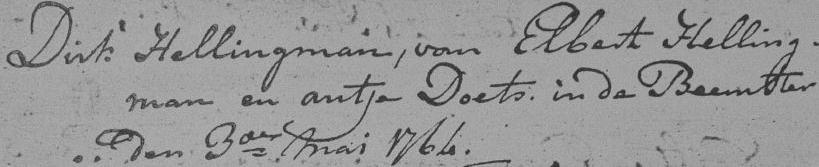 Dirk Hellingman, van Elbert Helling-
man en antje Doets. in de Beemster
den 3den mai 1764.